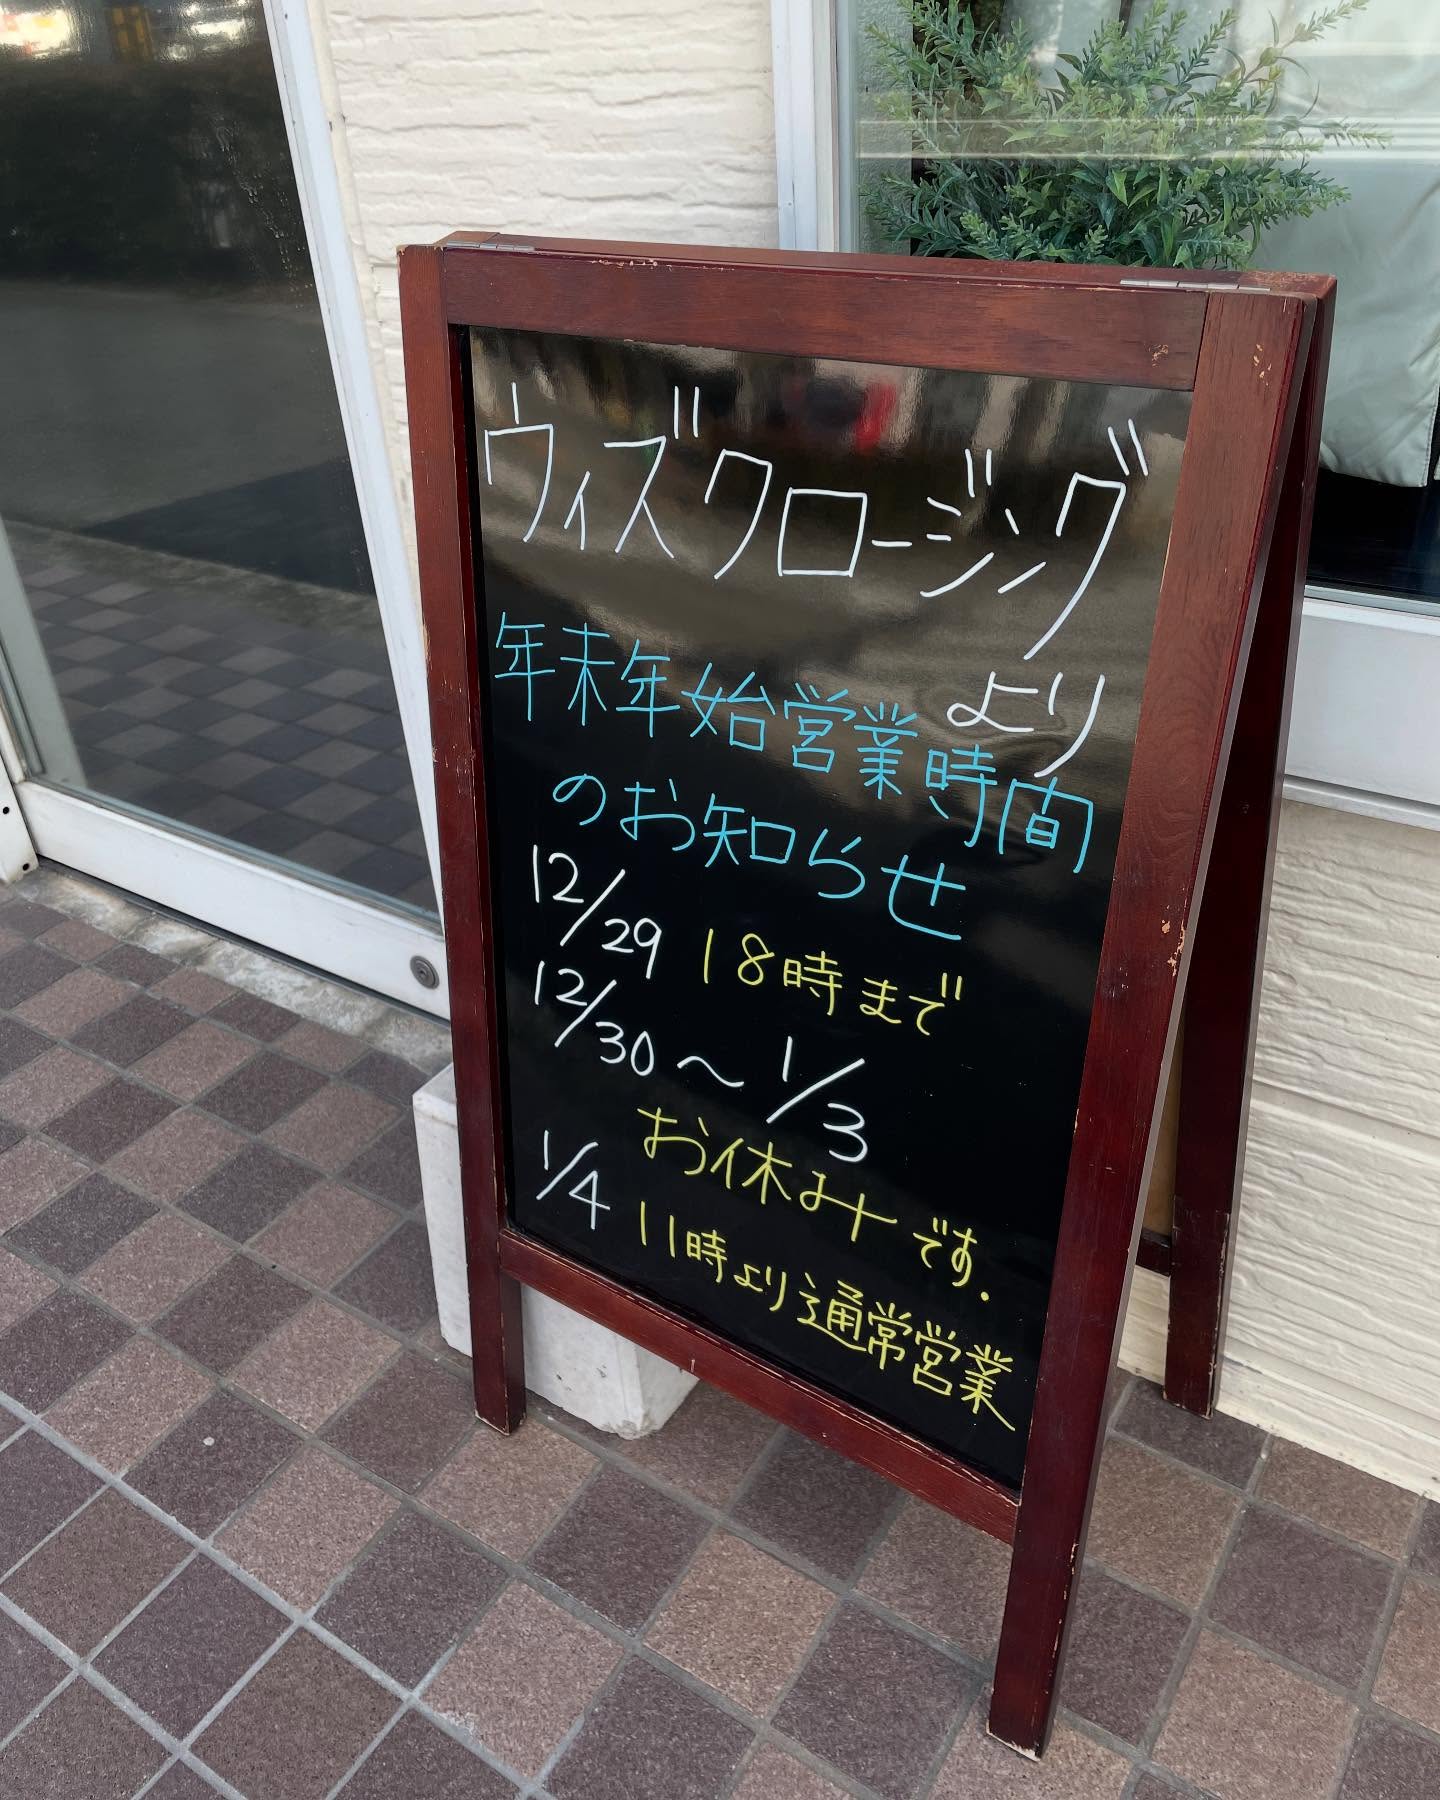 ウィズクロージング
より
年末年始営業時間
のお知らせ
12/29 18時まで
12/30〜1/3
お休みです.
1/4 11時より通常営業